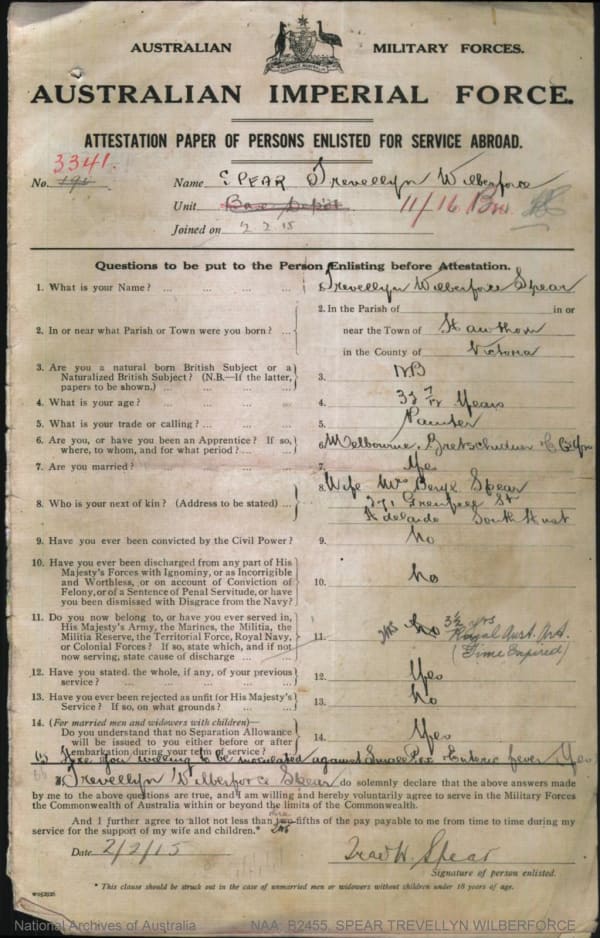 AUSTRALIAN MILITARY FORCES.
AUSTRALIAN IMPERIAL FORCE.
ATTESTATION PAPER OF PERSONS ENLISTED FOR SERVICE ABROAD.
3341.
No. 191 Name SPEAR Trevellyn Wilberforce
Unit Base Depot 11/16 Bn
Joined on 2 2 15
Questions to be put to the Person Enlisting before Attestation.
1. What is your Name? ... 1. Trevellyn Wilberforce Spear
2. In or near what Parish or Town were you born? ... 2. In the Parish of in or
near the Town of Hawthorn
in the County of Victoria
3. Are you a natural born British Subject or a
Naturalized British Subject? (N.B.—If the latter,
papers to be shown.) ... 3. NB
4. What is your age? ... 4. 33 7/12 Years
5. What is your trade or calling? ... 5. Painter
6. Are you, or have you been an Apprentice? If so,
where, to whom, and for what period? ... 6. Melbourne,
7. Are you married? ... 7. Yes
8. Who is your next of kin? (Address to be stated) ... 8. Wife Mrs Beryl Spear
271 Grenfell St
Adelaide South Aust
9. Have you ever been convicted by the Civil Power? 9. No
10. Have you ever been discharged from any part of His
Majesty's Forces with Ignominy, or as Incorrigible
and Worthless, or on account of Conviction of
Felony, or of a Sentence of Penal Servitude, or have
you been dismissed with Disgrace from the Navy? 10. No
11. Do you now belong to, or have you ever served in,
His Majesty's Army, the Marines, the Militia, the
Militia Reserve, the Territorial Force, Royal Navy,
or Colonial Forces? If so, state which, and if not
now serving, state cause of discharge ... 11. No 3½ yrs
Royal Aust. Art.
(Time Expired)
12. Have you stated the whole, if any, of your previous
service? ... 12. Yes
13. Have you ever been rejected as unfit for His Majesty's
Service? If so, on what grounds? ... 13. No
14. (For married men and widowers with children)—
Do you understand that no Separation Allowance
will be issued to you either before or after
embarkation during your term of service? 14. Yes
15 Are you willing to be inoculated against Small Pox Enteric fever. Yes
I, Trevellyn Wilberforce Spear do solemnly declare that the above answers made
by me to the above questions are true, and I am willing and hereby voluntarily agree to serve in the Military Forces
the Commonwealth of Australia within or beyond the limits of the Commonwealth.
And I further agree to allot not less than two three fifths of the pay payable to me from time to time during my
service for the support of my wife and children.*
Date 2/2/15 Trev W. Spear
Signature of person enlisted.
* This clause should be struck out in the case of unmarried men or widowers without children under 18 years of age.
National Archives of Australia NAA: B2455, SPEAR TREVELLYN WILBERFORCE